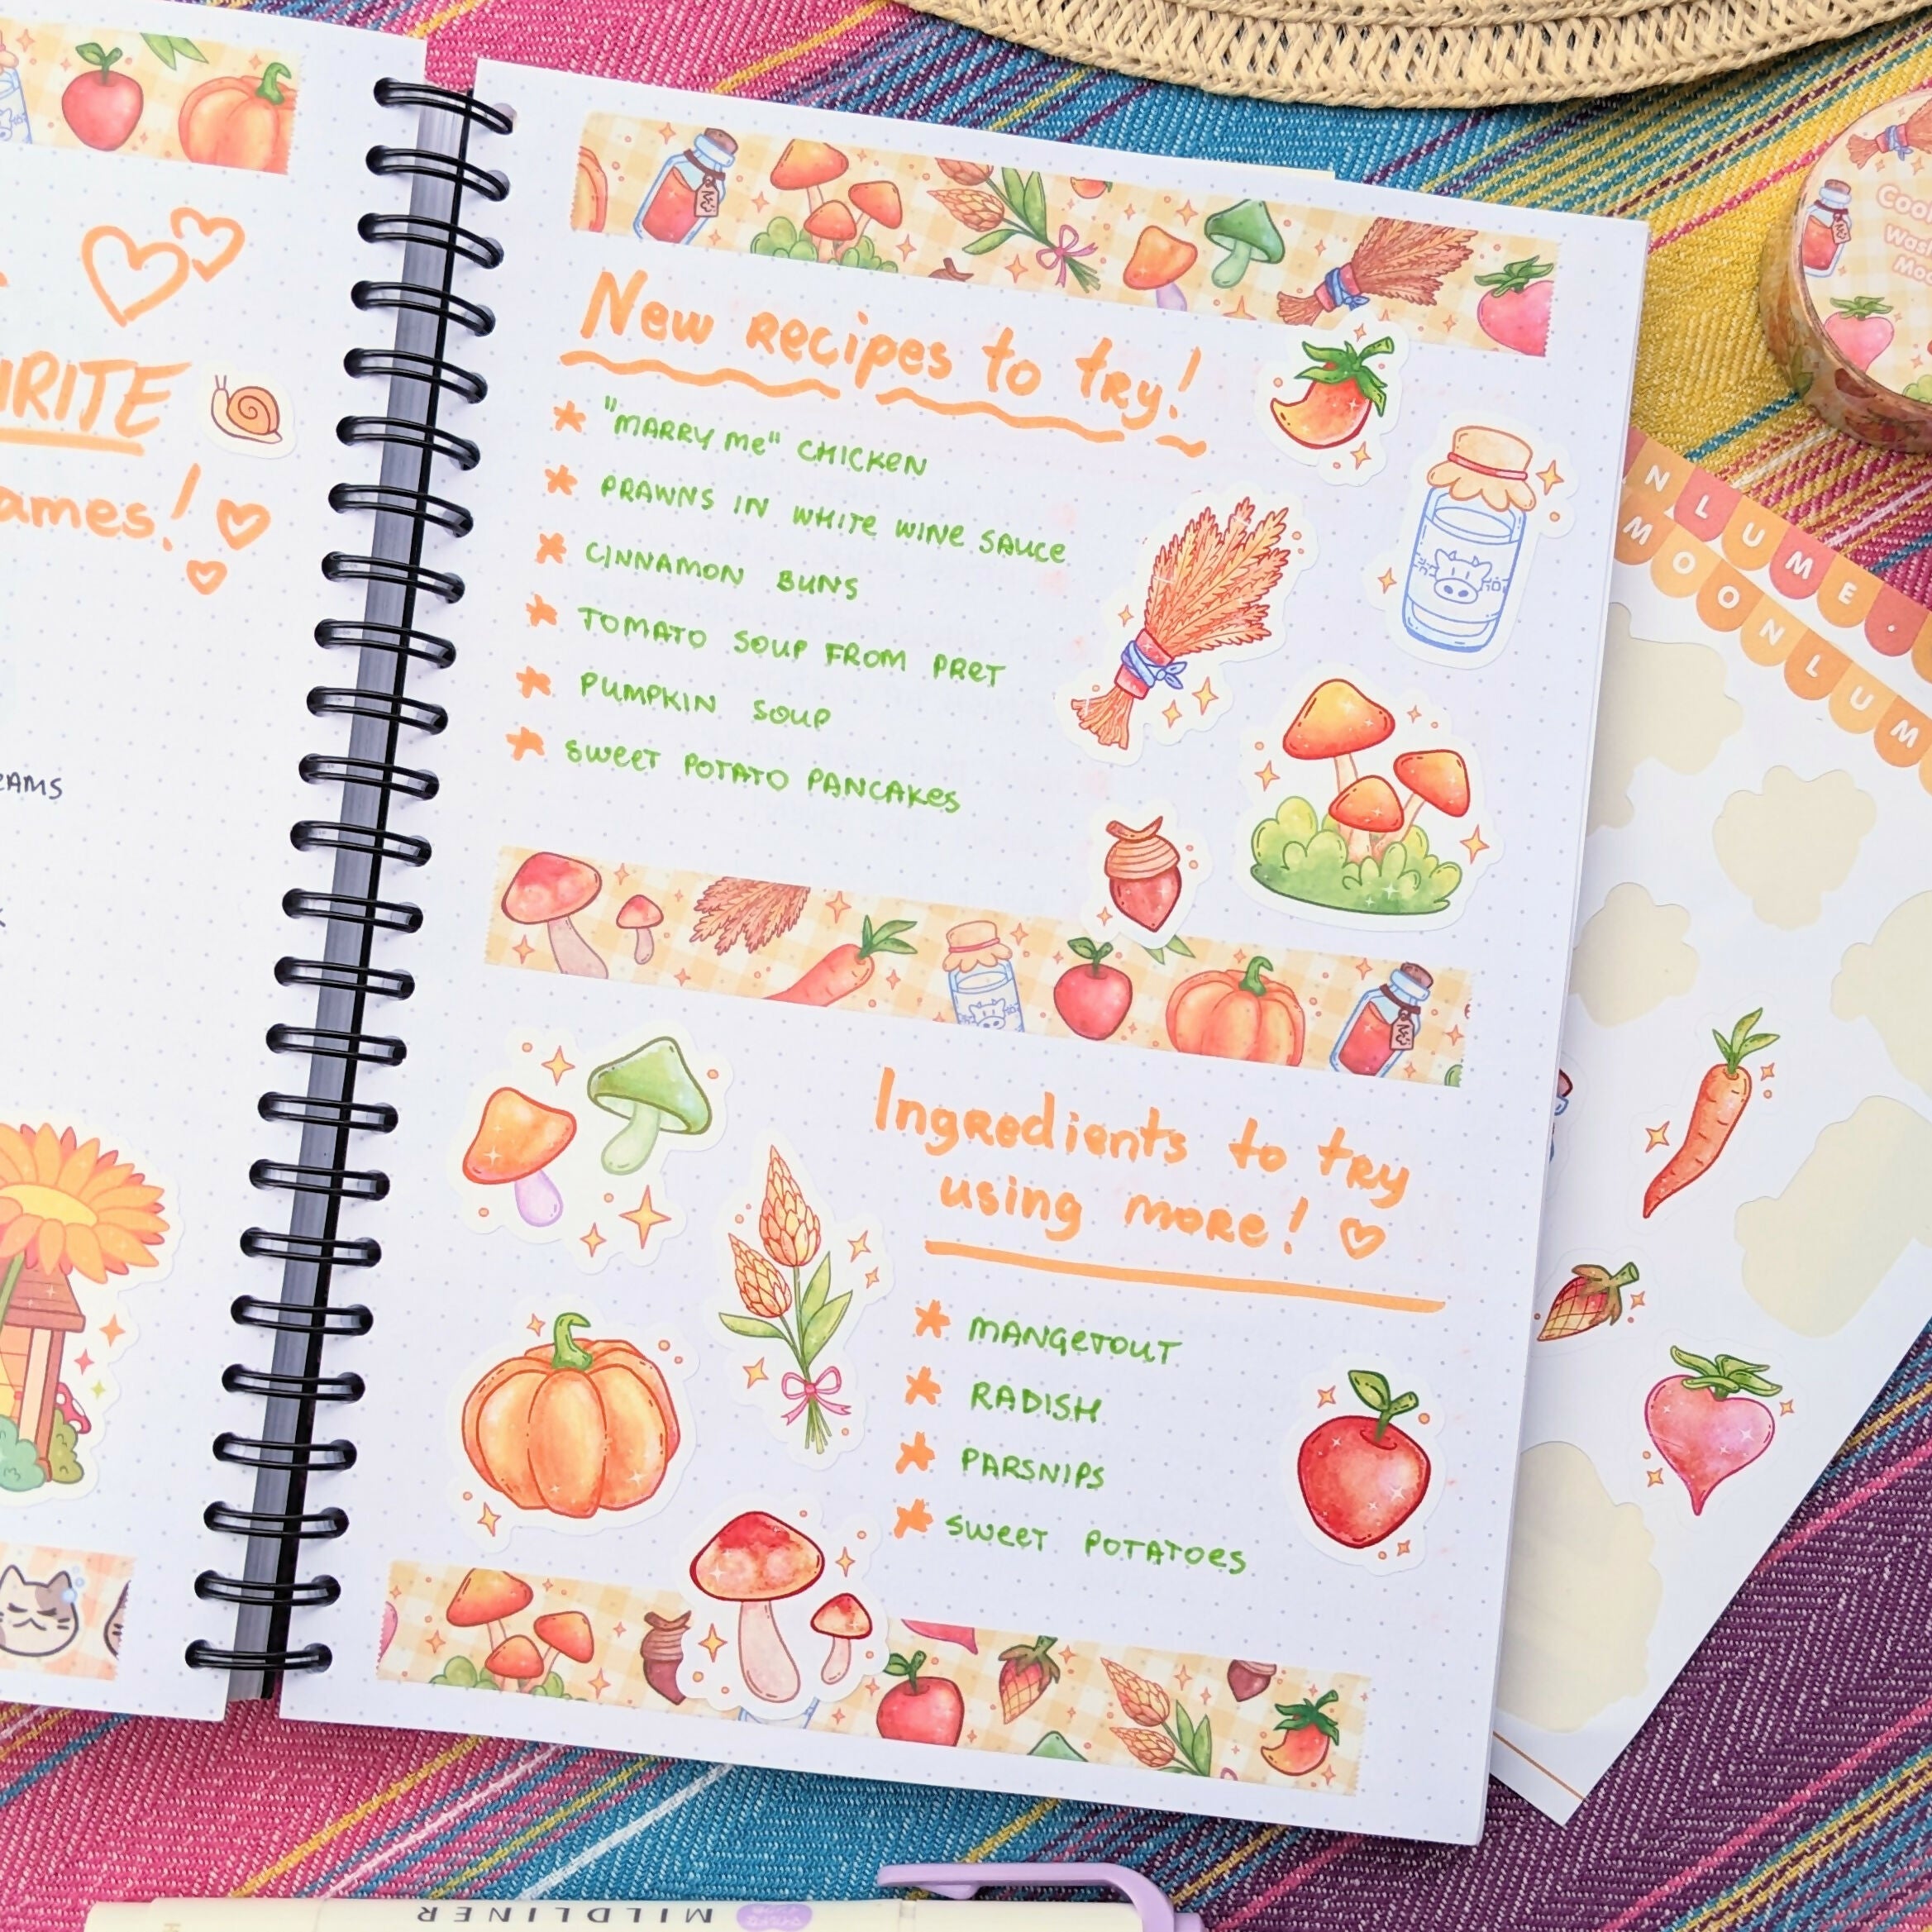 New recipes to try!
"MARRY Me" CHICKEN
PRAWNS IN WHITE WINE SAUCE
CINNAMON BUNS
TOMATO SOUP FROM PRET
PUMPKIN SOUP
SWEET POTATO PANCAKES
Ingredients to try
using more!
MANGETOUT
RADISH
PARSNIPS
SWEET POTATOES
NLUME.
MOONLUM
MILDLINER